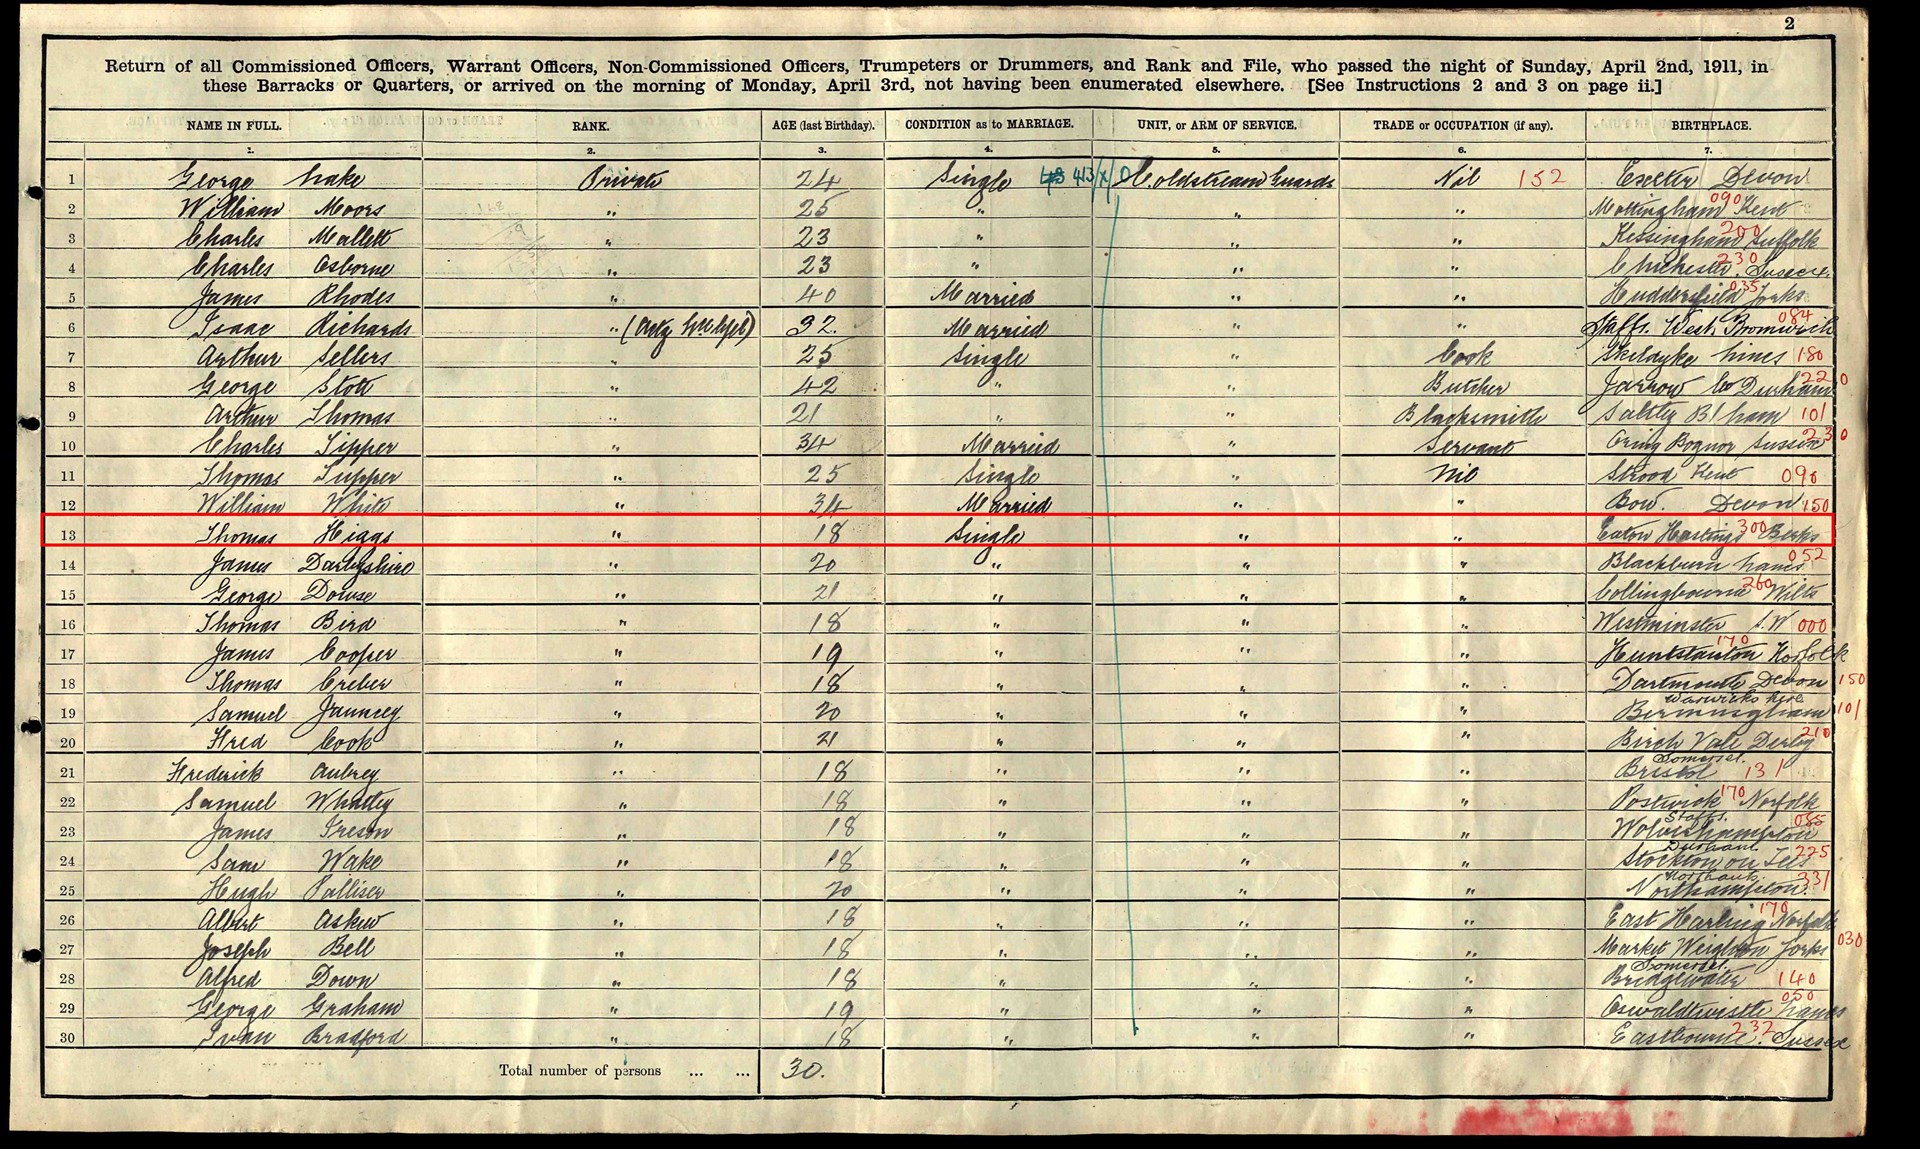 2
Return of all Commissioned Officers, Warrant Officers, Non-Commissioned Officers, Trumpeters or Drummers, and Rank and File, who passed the night of Sunday, April 2nd, 1911, in
these Barracks or Quarters, or arrived on the morning of Monday, April 3rd, not having been enumerated elsewhere. [See Instructions 2 and 3 on page ii.]
NAME IN FULL. RANK. AGE (last Birthday). CONDITION as to MARRIAGE. UNIT, or ARM OF SERVICE. TRADE or OCCUPATION (if any). BIRTHPLACE.
1. 2. 3. 4. 5. 6. 7.
1 George Lake Private 24 Single 413/X/0 Coldstream Guards Nil 152 Exeter Devon
2 William Moors " 25 " " " Mottingham Kent 090
3 Charles Mallett " 23 " " " Kessingham Suffolk 200
4 Charles Osborne " 23 " " " Chichester Sussex 230
5 James Rhodes " 40 Married " " Huddersfield Yorks 035
6 Isaac Richards " 32. Married " " Staffs. West Bromwich 084
7 Arthur Sellers " 25 Single " Cook Skeldyke Lincs 180
8 George Stott " 42 " " Butcher Jarrow Co Durham 220
9 Arthur Thomas " 21 " " Blacksmith Saltley B'ham 101
10 Charles Tipper " 34 Married " Servant Bognor Sussex 230
11 Thomas Tupper " 25 Single " Nil Strood Kent 090
12 William White " 34 Married " " Bow. Devon 150
13 Thomas Higgs " 18 Single " " Eaton Hastings 300 Berks
14 James Darbyshire " 20 " " " Blackburn Lancs 052
15 George Dowse " 21 " " " Collingbourne 260 Wilts
16 Thomas Bird " 18 " " " Westminster S.W 000
17 James Cooper " 19 " " " Hunstanton Norfolk 170
18 Thomas Creber " 18 " " " Dartmouth Devon 150
19 Samuel Jauncey " 20 " " " Warwickshire Birmingham 101
20 Fred Cook " 21 " " " Birch Vale Derby 210
21 Frederick Aubrey " 18 " " " Somerset. Bristol 131
22 Samuel Whatley " 18 " " " Postwick 170 Norfolk
23 James Ireson " 18 " " " Staffs. Wolverhampton 085
24 Sam Wake " 18 " " " Durham. Stockton on Tees 225
25 Hugh Palliser " 20 " " " Northant. Northampton 331
26 Albert Askew " 18 " " " East Harling Norfolk 170
27 Joseph Bell " 18 " " " Market Weighton Yorks 030
28 Alfred Down " 18 " " " Somerset. Bridgwater 140
29 George Graham " 19 " " " Oswaldtwistle Lancs 050
30 Ivan Bradford " 18 " " " Eastbourne 232 Sussex
Total number of persons ... ... 30.